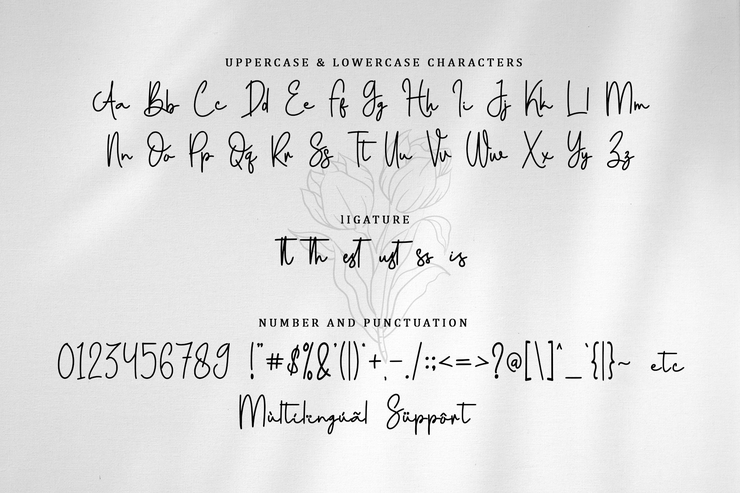 UPPERCASE & LOWERCASE CHARACTERS
Aa Bb Cc Dd Ee Ff Gg Hh Ii Jj Kk Ll Mm
Nn Oo Pp Qq Rr Ss Tt Uu Vv Ww Xx Yy Zz
lIGATURE
tt th est ust ss is
NUMBER AND PUNCTUATION
0123456789 !"#$%&'(|)*+,-./:;<=>?@[\]^_`{|}~ etc
Mùltilingúâl Süppôrt